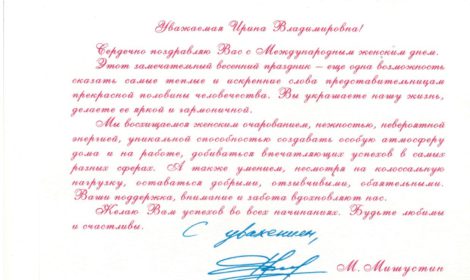 Уважаемая Ирина Владимировна!
Сердечно поздравляю Вас с Международным женским днем.
Этот замечательный весенний праздник – еще одна возможность
сказать самые теплые и искренние слова представительницам
прекрасной половины человечества. Вы украшаете нашу жизнь,
делаете ее яркой и гармоничной.
Мы восхищаемся женским очарованием, нежностью, невероятной
энергией, уникальной способностью создавать особую атмосферу
дома и на работе, добиваться впечатляющих успехов в самых
разных сферах. А также умением, несмотря на колоссальную
нагрузку, оставаться добрыми, отзывчивыми, обаятельными.
Ваши поддержка, внимание и забота вдохновляют нас.
Желаю Вам успехов во всех начинаниях. Будьте любимы
и счастливы.
С уважением,
М. Мишустин